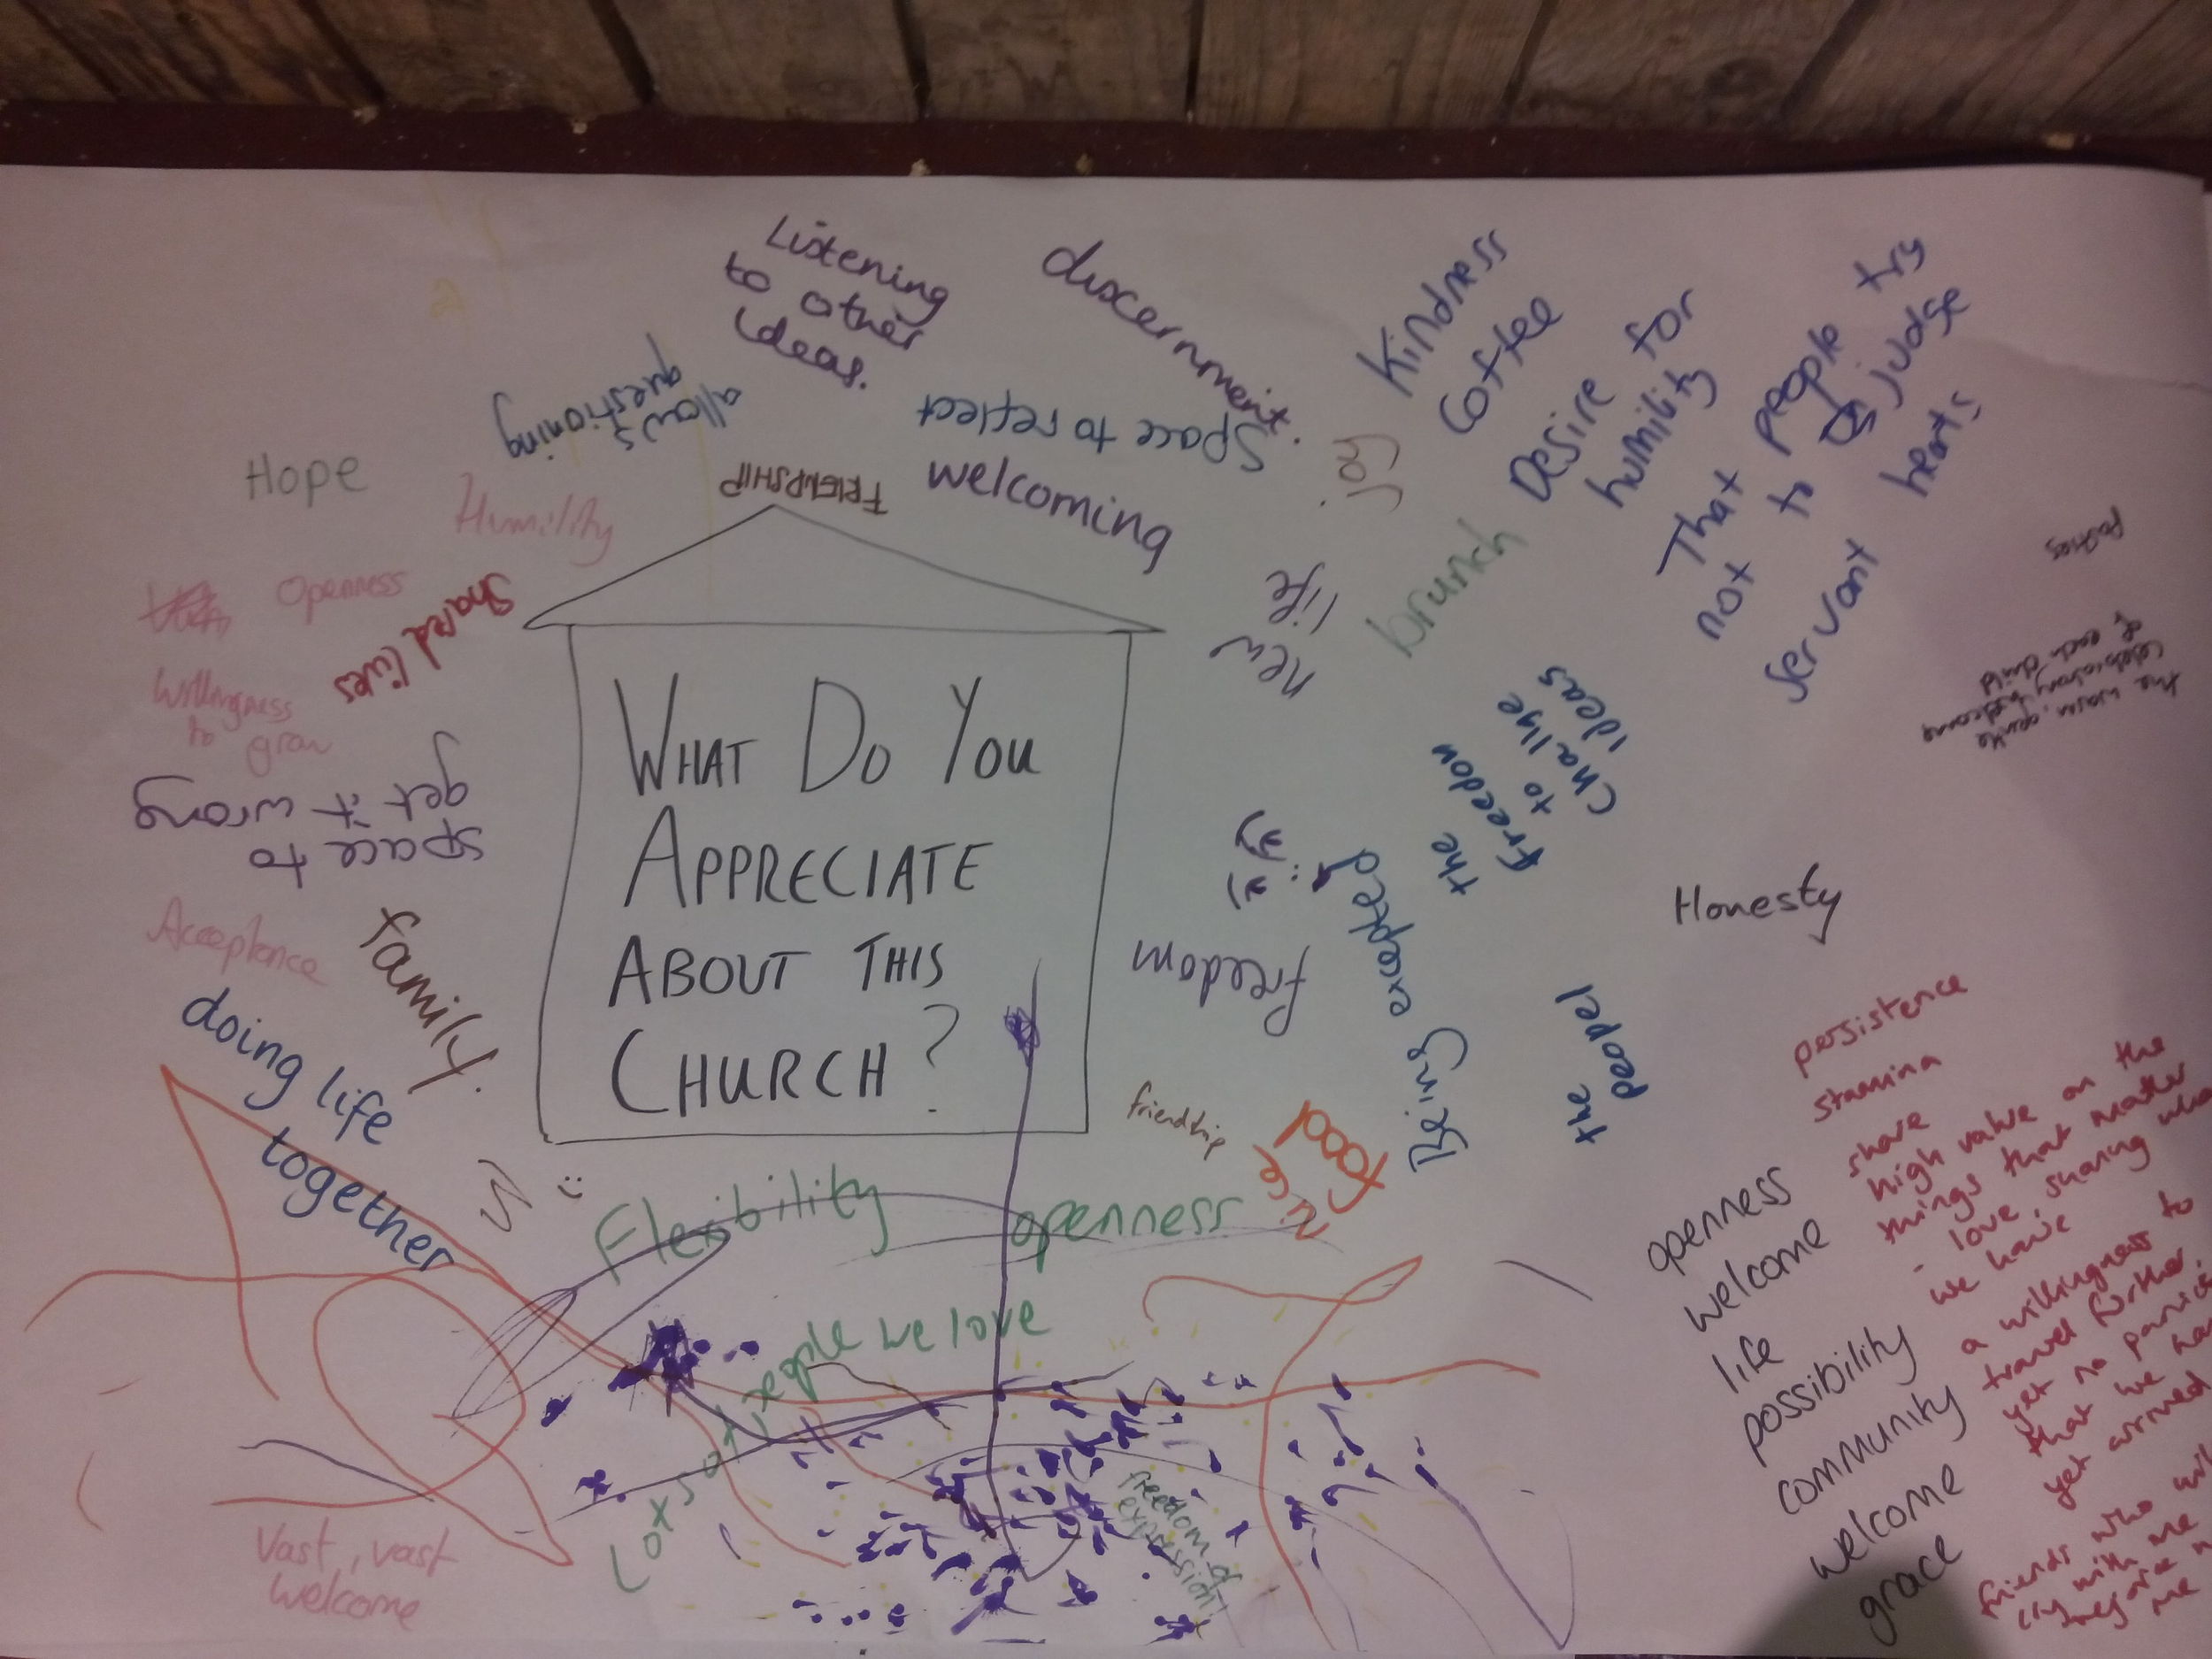 Listening
to other
ideas.
discernment
Kindness
Coffee
Desire for
humility
That people try
not to judge
servant hearts
allows
questioning
Space to reflect
FRIENDSHIP
welcoming
joy
Hope
Humility
Openness
Shared lives
Willingness
to grow
space to
get it wrong
Acceptance
family.
doing life
together
WHAT DO YOU
APPRECIATE
ABOUT THIS
CHURCH?
new
life
brunch
parties
the warm, gentle
welcome
of each child
the
freedom
to
challge
ideas
Being excepted
freedom
Honesty
the
peopel
friendship
nice
food
:)
Flexibility
openness
Lots of people we love
freedom of
expression!
Vast, vast
welcome
openness
welcome
life
possibility
community
welcome
grace
persistence
stamina
share
high value on the
things that matter
- love, sharing
we have
a willingness to
travel further
yet no panic
that we
yet arrived
friends who
cry with me
me